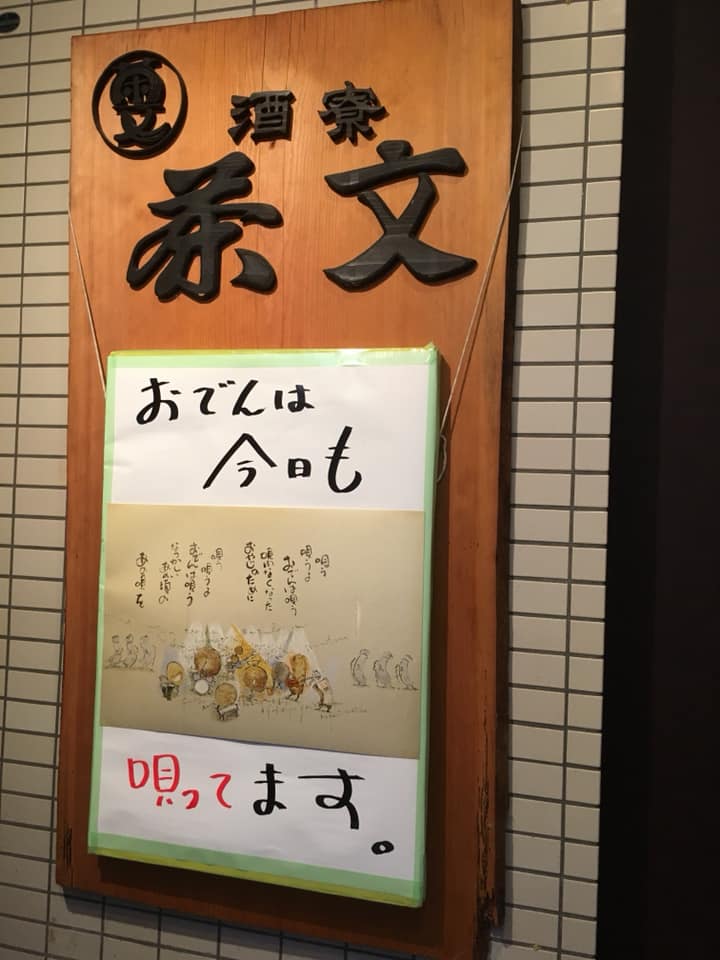 酒寮
茶文
おでんは
今日も
唄う
唄うよ
おでんは唄う
唄わなくなった
おやじのために
唄う
唄うよ
おでんは唄う
なつかしい
あの頃の
あの唄を
唄ってます。